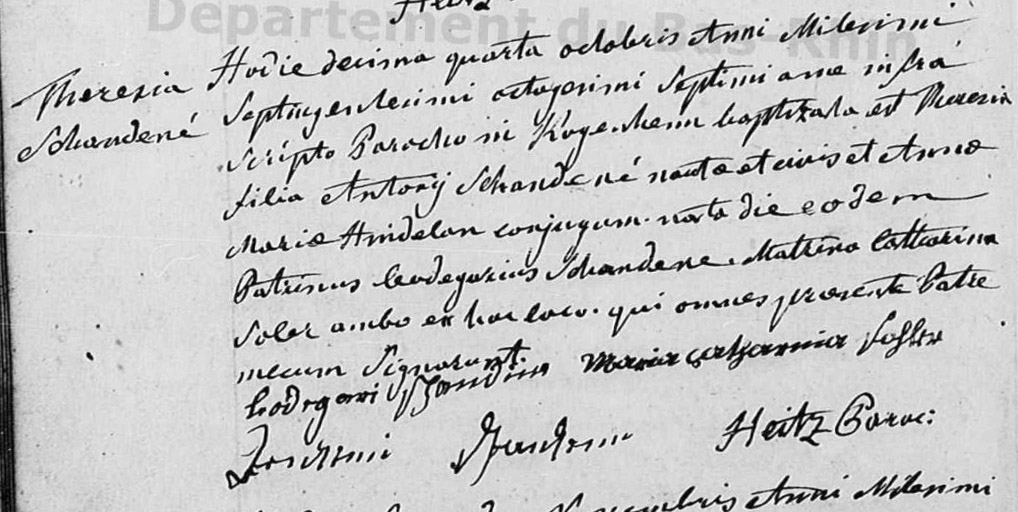 Departement du Bas-Rhin
Heitz
Theresia Hodie decima quarta octobris Anni Milesimi
Schandené Septingentesimi octogesimi Septimi a me infrá
scripto Parocho in Kogenheim baptizata est Theresia
filia Antonij Schandené nautæ et civis et Annæ
Mariæ Hindelan conjugum. nata die eodem
Patrinus Leodegarius Schandene. Matrina Catharina
Soler ambo ex hoc loco. qui omnes præsente Patre
mecum Signarunt.
Leodegari Maria Catharina
Heitz Paroc:
Anni Milesimi